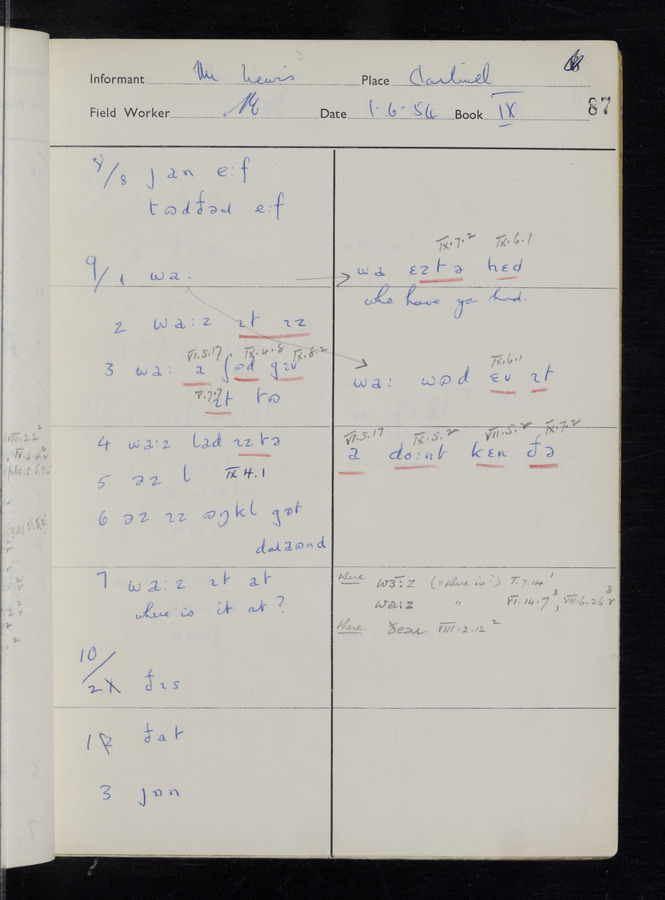 Informant Mr Lewis Place Cartmel
Field Worker Date 1-6-54 Book IX 87
8/8 jan e:f
9/1 wa:
wa ɛztə hɛd
IX.7.2 IX.6.1
who have you had.
2 wa:z ɪt ɪz
VI.5.17 IX.4.8 IX.8.2
3 wa: a ʃəd gɪv
V.7.7 ɪt tə
IX.6.1
wa: wəd ɛv ɪt
4 wa:z lad ɪztə
VI.5.17 IX.5.2 VII.5.2 IX.7.2
a do:nt kɛn ðə
5 əz l IX 4.1
6 əz ɪz ɒŋkl gɒt
7 wa:z ɪt at
where is it at?
where wɜ:z (= where is) V.7.14
wa:z " VI.14.7³, VII.6.26³
there ðɛəɹ VIII.2.12²
10/
2 ðɪs
1 ðat
3 jɒn